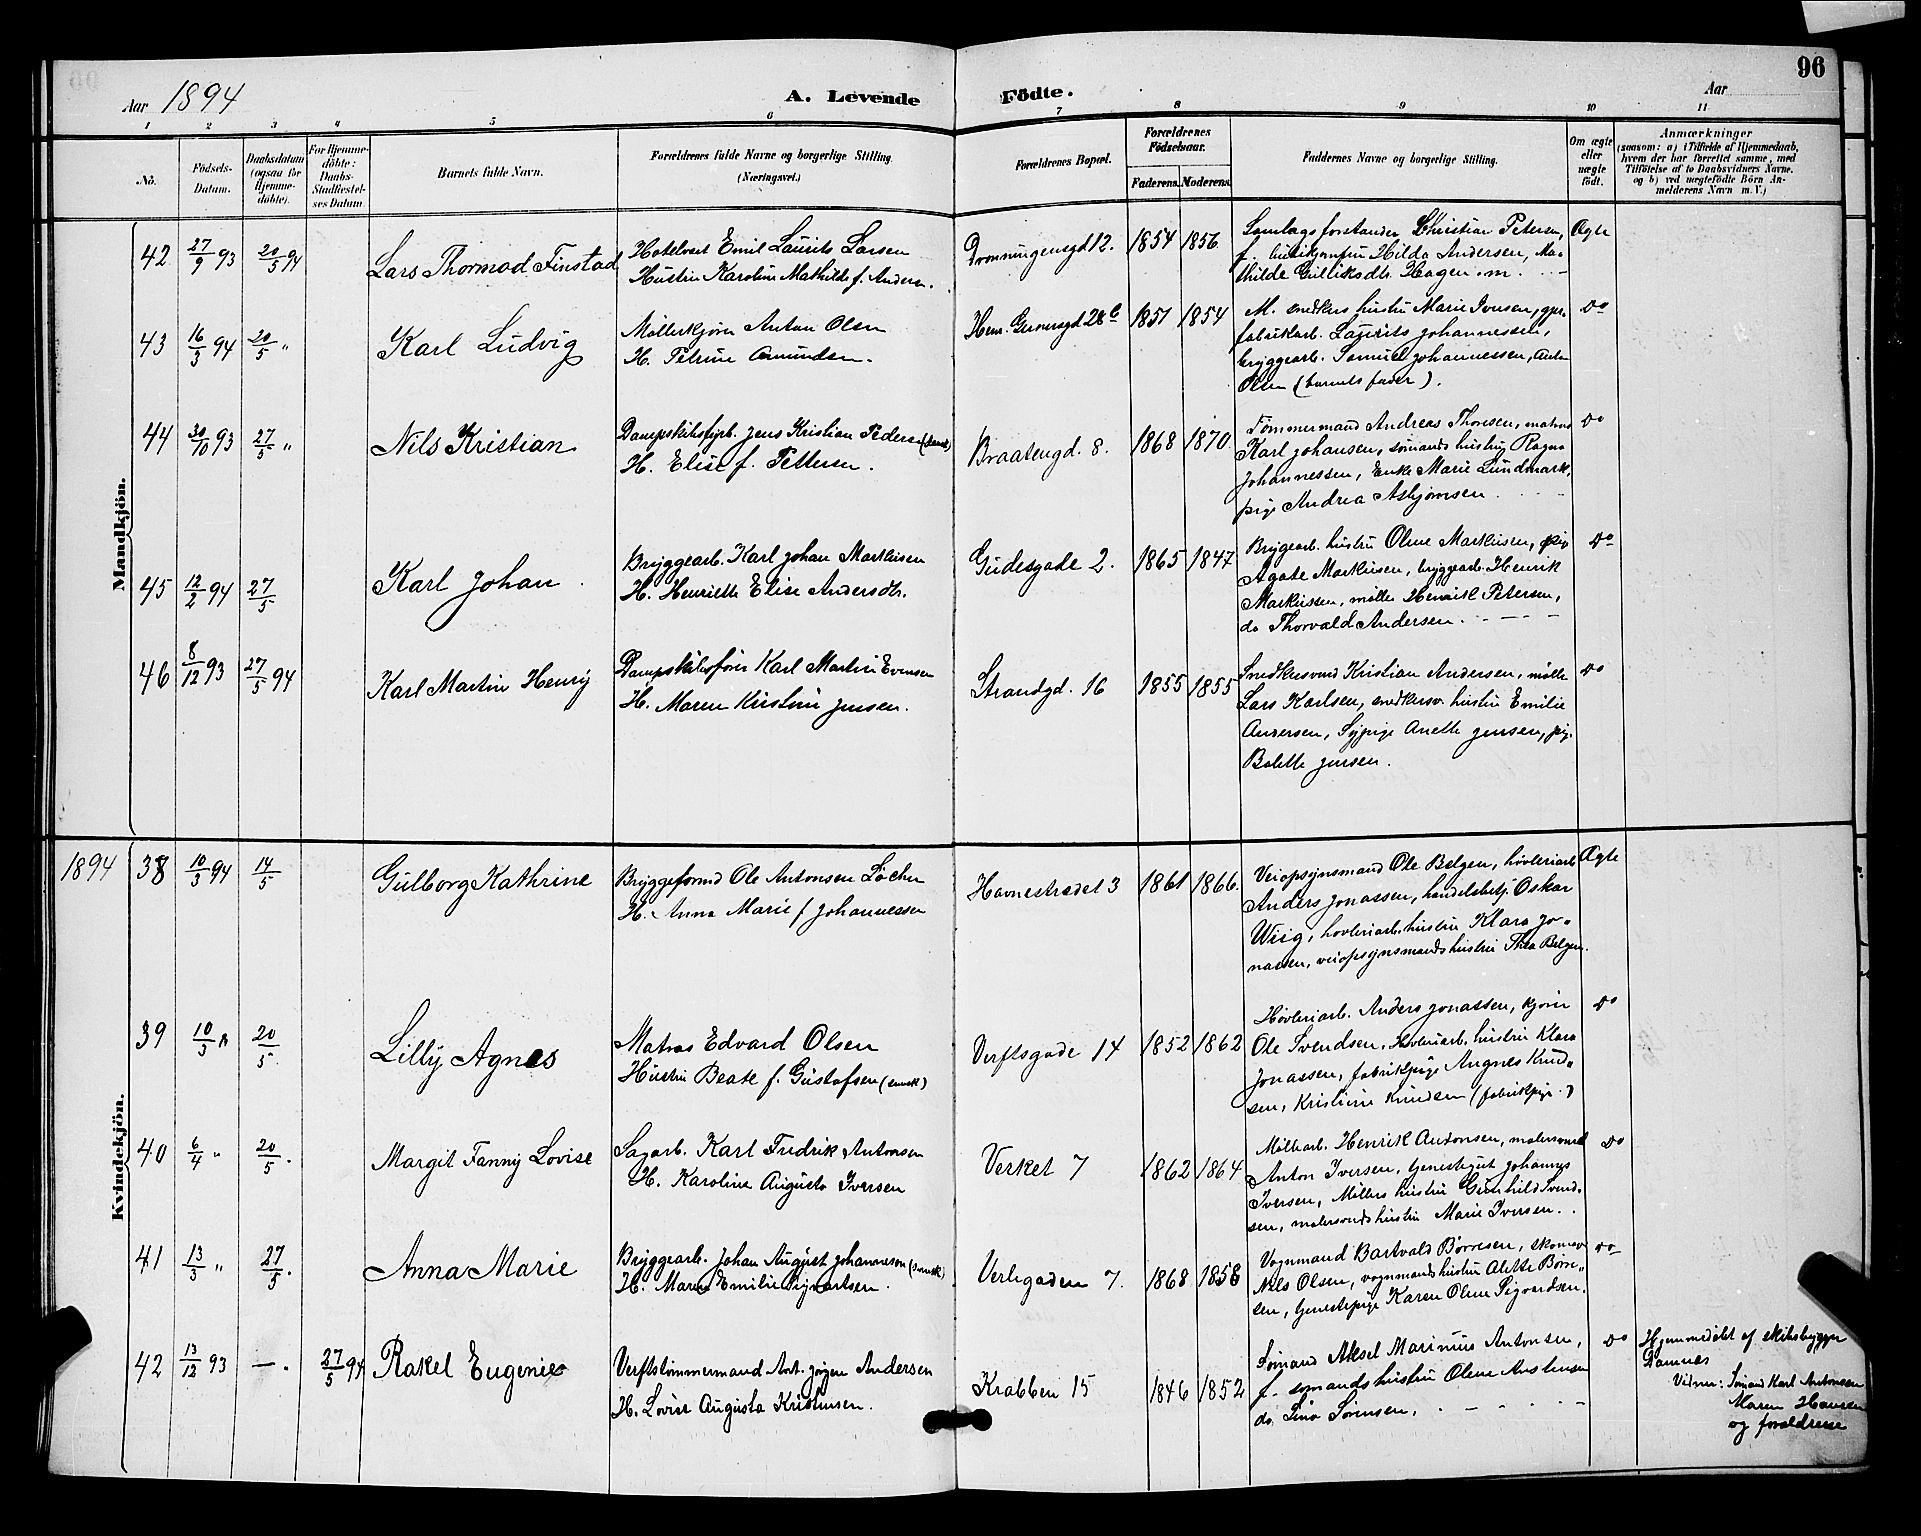 96
Aar 1894
A. Levende Fødte.
Aar
1 2 3 4 5 6 7 8 9 10 11
No.
Födsels-
Datum.
Daabsdatum
(ogsaa for
Hjemme-
döbte).
For Hjemme-
döbte:
Daabs-
Stadfæstel-
ses Datum
Barnets fulde Navn.
Forældrenes fulde Navne og borgerlige Stilling.
(Næringsvei.)
Forældrenes Bopæl.
Forældrenes
Födselsaar.
Faderens. Moderens.
Faddernes Navne og borgerlige Stilling.
Om ægte
eller
uægte
født.
Anmærkninger
(saasom: a) i Tilfælde af Hjemmedaab,
hvem der har forrettet samme, med
Tilföielse af to Daabsvidners Navne.
og b) ved uægtefödte Börn An-
melderens Navn m. V.)
Mandkjön.
42 27/9 93 20/5 94 Lars Thormod Finstad
Hotelvert Emil Laurits Larsen
Hustru Karoline Mathilde f. Anders.
Dronningensgd 12. 1854 1856
Samlagsforstander Christian Petersen,
f. Hilda Andersen, Ma-
thilde Gulliksdtr. Hagen
Ægte
43 16/3 94 20/5 " Karl Ludvig
Møllerkjører Anton Olsen
H. Petrine Amundsen.
Hen. Gernersgd 28b 1851 1854
M. snedkers hustru Marie Iversen,
fabrikarb. Laurits Johannessen,
bryggearb. Samuel Johannessen, Anton
Olsen (barnets fader).
Do
44 30/10 93 27/5 " Nils Kristian
Dampskibsfyrb. Jens Kristian Pedersen (dansk)
H. Elise f. Pettersen.
Braatengd. 8. 1868 1870
Tømmermand Andreas Thoresen, matros
Karl Johansen, sømands hustru Ragna
Johannessen, Enke Marie Lundmark,
pige Andrea Asbjørnsen.
Do
45 12/2 94 27/5 Karl Johan
Bryggearb. Karl Johan Markusen
H. Henriette Elise Andersdtr.
Gudesgade 2. 1865 1847
Bryggearb. hustru Oline Markusen, pige
Agate Markusen, bryggearb. Henrik
Markussen, møller Henrik Petersen,
do Thorvald Andersen.
Do
46 8/12 93 27/5 94 Karl Martin Henry
Dampskibsfører Karl Martin Evensen
H. Maren Kristine Jensen.
Strandgd. 16 1855 1855
Snedkersvend Kristian Andersen, møller
Lars Karlsen, snedkersv. hustru Emilie
Andersen, Sypige Anette Jensen, pige
Bolette Jensen.
Do
Kvindekjön.
1894 38 10/3 94 14/5 Gulborg Kathrine
Bryggeformd Ole Antonsen Løcher
H. Anna Marie f Johannessen
Havnestrædet 3 1861 1866.
Veiopsynsmand Ole Belgen, høvleriarb
Anders Jonassen, handelsbetj. Oskar
Wiig, høvleriarb. hustru Klara Jo-
nassen, veiopsynsmands hustru Thea Belgen.
Ægte
39 10/3 20/5 Lilly Agnes
Matros Edvard Olsen
Hustru Beate f. Gustafsen (svensk)
Verftsgade 14 1852 1862
Høvleriarb. Anders Jonassen, kjører
Ole Svendsen, høvleriarb. hustru Klara
Jonassen, fabrikpige Angnes Knud-
sen, Kristine Knudsen (fabrikpige.)
Do
40 6/4 " 20/5. Margit Fanny Lovise
Sagarb. Karl Fredrik Antonsen
H. Karoline Augusta Iversen
Verket 7 1862 1864
Møllearb. Henrik Antonsen, malersvend
Anton Iversen, tjenestegut Johannes
Iversen, Møllers hustru Gunhild Svend-
sen, malersvends hustru Marie Iversen.
Do
41 13/3 " 27/5. Anna Marie
Bryggearb. Johan August Johannesson (svensk)
H. Maren Emilie Sigvartsen.
Verlegaden 7. 1868 1858
Vognmand Bartvald Børresen, skomager
Nils Olsen, vognmands hustru Alette Børre-
sen, tjenestepige Karen Oline Sigvardsen.
Do
42 13/12 93 —. 27/5 94 Rakel Eugenie
Verftstømmermand Ant. Jørgen Andersen
H. Lovise Augusta Kristensen.
Krabben 15 1846 1852
Sømand Aksel Marinius Antonsen,
f. sømands hustru Oline Anstensen
do. Tina Sørensen.
Do
Hjemmedøbt af skibsbygger
Ramnes
Vidner: Sømand Karl Antonsen
Maren Hansen
og forældrene